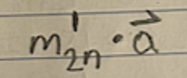 m¹₂ₙ · a⃗